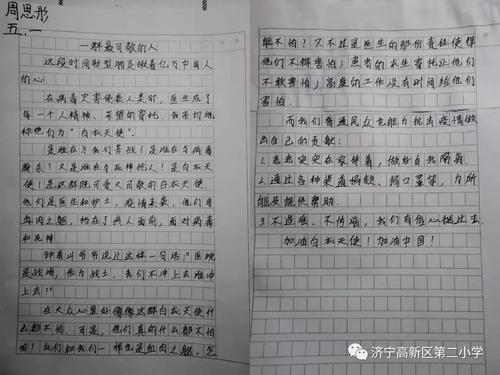 周思彤
五、一
一群最可敬的人
这段时间新型肺炎揪着亿万中国人
的心。
在病毒灾害侵袭人类时，医生成了
每一个人精神、希望的寄托。我亲切地
称他们为"白衣天使"。
是谁在与我们苦战！是谁在与病毒
厮杀？又是谁在与死神抢人！是白衣天
使！是这群既可爱又可敬的白衣天使。
他们是医生和护士，疫情来袭，他们用
血肉之躯，挡在了病人面前，面对病毒
和死神。
钟南山爷爷说过这样一句话："医院
是战场，作为战士，我们不冲上去谁冲
上去？"
在大众心里好像像这群白衣天使什
么都不怕。可是，他们真的什么都不怕
吗？他们和我们一样也是血肉之躯，怎
能不怕？只不过是医生的那份责任使得
他们不群害怕；患者的求生寄托让他们
不敢害怕；高度的工作没有时间给他们
害怕。
而我们普通民众也能为抗击疫情做
出自己的贡献：
1.老老实实在家待着，做好自我隔离。
2.通过各种渠道捐款、捐口罩等，力所
能及提供帮助。
3.不造谣、不传谣，我们有信心挺过去。
加油白衣天使！加油中国！
济宁高新区第二小学